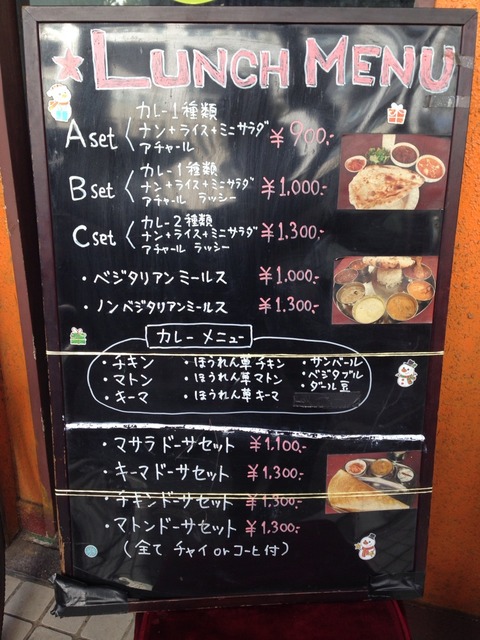 ★LUNCH MENU
Aset カレー1種類
ナン+ライス+ミニサラダ
アチャール ¥900.-
Bset カレー1種類
ナン+ライス+ミニサラダ
アチャール ラッシー ¥1,000.-
Cset カレー2種類
ナン+ライス+ミニサラダ
アチャール ラッシー ¥1,300.-
・ベジタリアンミールス ¥1,000.-
・ノンベジタリアンミールス ¥1,300.-
カレーメニュー
・チキン ・ほうれん草チキン ・サンバール
・マトン ・ほうれん草マトン ・ベジタブル
・キーマ ・ほうれん草キーマ ・ダール豆
・マサラドーサセット ¥1,100.-
・キーマドーサセット ¥1,300.-
・チキンドーサセット ¥1,300.-
・マトンドーサセット ¥1,300.-
(全て チャイ or コーヒ付)